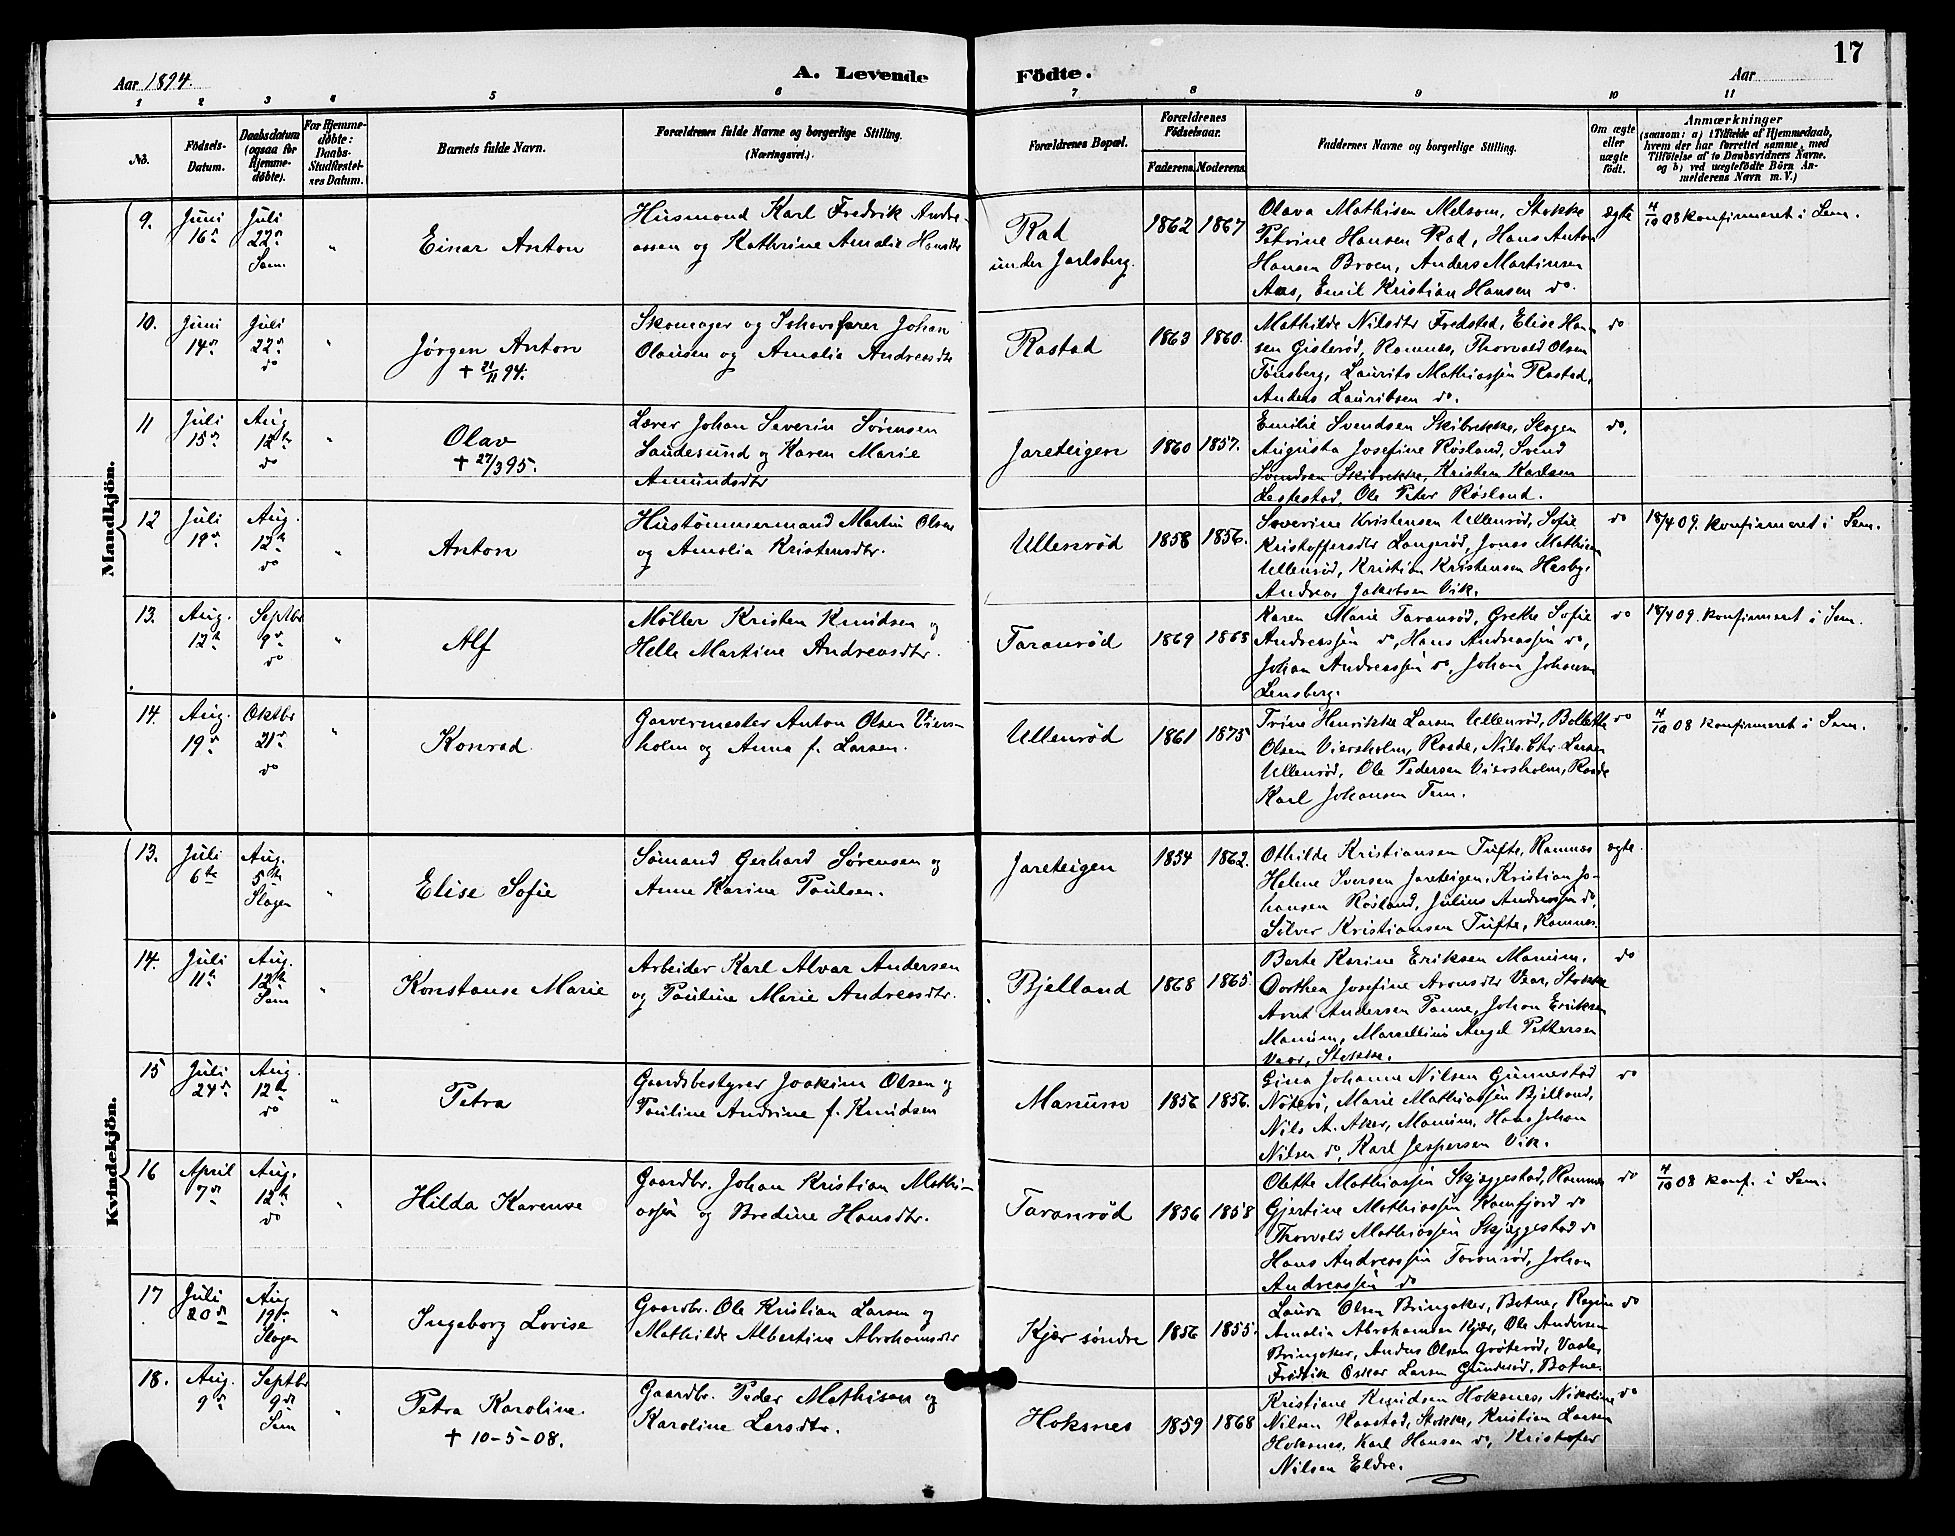 17
Aar 1894.
A. Levende Födte.
Aar
1 2 3 4 5 6 7 8 9 10 11
No.
Födsels-
Datum.
Daabsdatum
(ogsaa for
Hjemme-
döbte).
For Hjemme-
döbte:
Daabs-
Stadfæstel-
ses Datum.
Barnets fulde Navn.
Forældrenes fulde Navne og borgerlige Stilling.
(Næringsvei.)
Forældrenes Bopæl.
Forældrenes
Födselsaar.
Faderens. Moderens.
Faddernes Navne og borgerlige Stilling.
Om ægte
eller
uægte
födt.
Anmærkninger
(saasom: a) i Tilfælde af Hjemmedaab,
hvem der har forrettet samme, med
Tilföielse af to Daabsvidners Navne.
og b) ved uægtefödte Börn An-
melderens Navn m. V.)
Mandkjön.
9.
Juni
16
Juli
22
Sem.
"
Einar Anton
Husmand Karl Fredrik Andre-
assen og Kathrine Amalie Hansdtr
Rad
under Jarlsberg.
1862 1867
Olava Mathisen Melsom, Stokke
Petrine Hansen Rad, Hans Anton
Hansen Broen, Anders Martinsen
Aas, Emil Kristian Hansen do.
ægte
4/10 08 konfirmeret i Sem.
10.
Juni
14
Juli
22
do
"
Jørgen Anton
† 21/11 94.
Skomager og Ishavsfarer Johan
Olausen og Amalia Andreasdtr
Rastad
1863 1860.
Mathilde Nilsdtr Fredsted, Elise Han-
sen Gisterød, Ramnes, Thorvald Olsen
Tønsberg, Laurits Mathiassen Rastad,
Anders Lauritsen do.
do
11
Juli
15
Aug
12
do
"
Olav
† 27/3 95.
Lærer Johan Severin Sørensen
Sandesund og Karen Marie
Amundsdtr
Jareteigen
1860 1857.
Emilie Svendsen Skibrekke, Slagen
Augusta Josefine Røsland, Svend
Svendsen Skibrekke, Kristen Karlsen
Lestestad, Ole Peter Røsland.
do.
12
Juli
19
Aug.
12
do
"
Anton
Hustømmermand Martin Olsen
og Amalia Kristensdtr.
Ullenrød
1858 1856.
Severine Kristensen Ullenrød, Sofie
Kristoffersdtr Langerød, Jonas Mathisen
Ullenrød, Kristian Kristensen Hesby,
Andreas Jakobsen Vik.
do
18/4 09. konfirmeret i Sem.
13.
Aug.
12
Septbr
9
do
"
Alf
Møller Kristen Knudsen og
Helle Martine Andreasdtr.
Taranrød
1869 1865
Karen Marie Taranrød, Grethe Sofie
Andreassen do, Hans Andreassen do,
Johan Andreassen do, Johan Johansen
Lensberg.
do
18/4 09. konfirmeret i Sem.
14.
Aug.
19
Oktbr
21
do
"
Konrad
Garvermester Anton Olsen Viers-
holm og Anna f. Larsen.
Ullenrød
1861 1875
Trine Henrikke Larsen Ullenrød, Bollette
Olsen Viersholm, Raade, Nils Chr. Larsen
Ullenrød, Ole Pedersen Viersholm, Raade
Karl Johansen Tem.
do
4/10 08 konfirmeret i Sem.
Kvindekjön.
13.
Juli
6te
Aug.
5te
Slagen
"
Elise Sofie
Sømand Gerhard Sørensen og
Anne Karine Paulsen.
Jareteigen
1854 1862.
Othilde Kristiansen Tufte, Ramnes
Helene Iversen Jareteigen, Kristian Jo-
hansen Røsland, Julius Andreassen do,
Silver Kristiansen Tufte, Ramnes.
ægte.
14.
Juli
11te
Aug.
12te
Sem
"
Konstanse Marie
Arbeider Karl Alvar Andersen
og Pauline Marie Andreasdtr.
Bjelland
1868 1865.
Berte Karine Eriksen Manum,
Dorthea Josefine Aronsdtr Vear, Stokke
Arnt Andersen Tanne, Johan Eriksen
Manum, Marcellius Angel Pettersen
Vear, Stokke.
do
15
Juli
24
Aug.
12te
do
"
Petra
Gaardsbestyrer Joakim Olsen og
Pauline Andrine f. Knudsen
Manum
1856 1856.
Gina Johanne Nilsen Gunnestad
Nøterø, Marie Mathiassen Bjelland,
Nils A. Aker, Manum, Hans Johan
Nilsen do, Karl Jespersen Vik.
do
16
April
7
Aug.
12te
do
"
Hilda Karense
Gaardbr. Johan Kristian Mathi-
assen og Bredine Hansdtr.
Taranrød
1856 1858
Olette Mathiassen Skjæggestad, Ramnes
Gjertine Mathiassen Kamfjord do
Thorvald Mathiassen Skjæggestad do
Hans Andreassen Taranrød, Johan
Andreassen do
do
4/10 08 konf. i Sem.
17
Juli
20
Aug
19
Slagen
"
Ingeborg Lovise
Gaardbr. Ole Kristian Larsen og
Mathilde Albertine Abrahamsdtr
Kjær søndre
1856 1855.
Laura Olsen Bringaker, Botne, Ragine
Amalia Abrahamsen Kjær, Ole Andersen
Bringaker, Anders Olsen Grøterød, Vaale,
Fredrik Oskar Larsen Gunderød, Botne.
do
18.
Aug.
9
Septbr
9
Sem
"
Petra Karoline.
† 10-5-08.
Gaardbr. Peder Mathisen og
Karoline Larsdtr.
Hoksnes
1859 1868
Kristiane Knudsen Hoksnes, Nikoline
Nilsen Raastad, Stokke, Kristian Larsen
Hoksnes, Karl Hansen do, Kristofer
Nilsen Eldre.
do